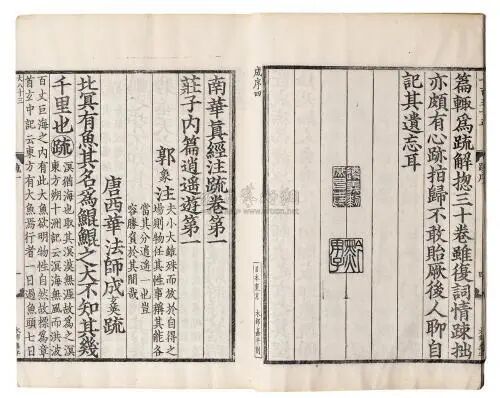 篇輒為疏解揔三十卷雖復詞情疎拙
亦頗有心跡指歸不敢貽厥後人聊自
記其遺忘耳
成序四
南華真經注疏卷第一
莊子內篇逍遙遊第一
郭象注
夫小大雖殊而放於自得之
場則物任其性事稱其能各
當其分逍遥一也豈
容勝負於其閒哉
唐西華法師成玄英疏
北冥有魚其名為鯤鯤之大不知其幾
千里也疏
溟猶海也取其溟漠無涯故為之溟
東方朔十洲記云溟海無風而洪波
百丈巨海之內有此大魚欲明物性自然故標為章
首玄中記云東方有大魚焉行者一日過魚頭七日